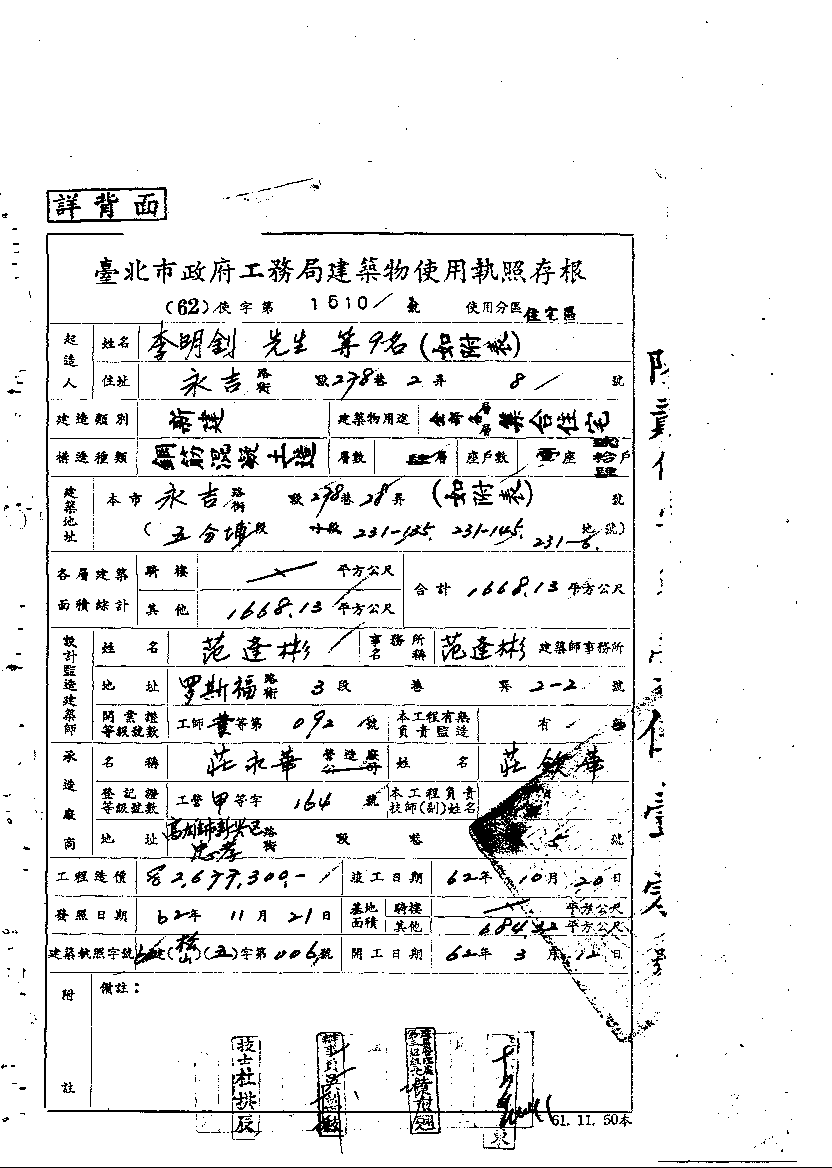 詳背面
臺北市政府工務局建築物使用執照存根
(62)使字第 1510 號 使用分區 住宅區
起造人 姓名 李明釗 先生 等9名(如附表)
住址 永吉 路街 段278巷 2 弄 8 號
建造類別 新建 建築物用途 集合住宅
構造種類 鋼筋混凝土造 層數 肆層 座戶數 壹座 戶
建築地址 本市 永吉 路街 段278巷 28弄 (如附表) 號
(五分埔段 小段 231-135. 231-145. 231-6. 地號)
各層建築面積綜計 騎樓 平方公尺 合計 1668.13 平方公尺
其他 1668.13 平方公尺
設計監造建築師 姓名 范逢彬 事務所名稱 范逢彬 建築師事務所
地址 罗斯福 路街 3段 巷 弄 2-2 號
開業證等級號數 工師 等第 092 號 本工程有無負責監造 有
承造廠商 名稱 莊永華 營造廠 姓名 莊欽華
登記證等級號數 工營 甲 等字 164 號 本工程負責技師(副)姓名
地址 高雄市新興區忠孝 路街 段 巷 5 號
工程造價 2,677,300.- 竣工日期 62年 10月 20日
發照日期 62年 11月 21日 基地面積 騎樓 平方公尺
其他 684.32 平方公尺
建築執照字號 建(松山)(五)字第 006 號 開工日期 62年 3月 12日
附註 備註:
技士杜拱辰
61. 11. 50本